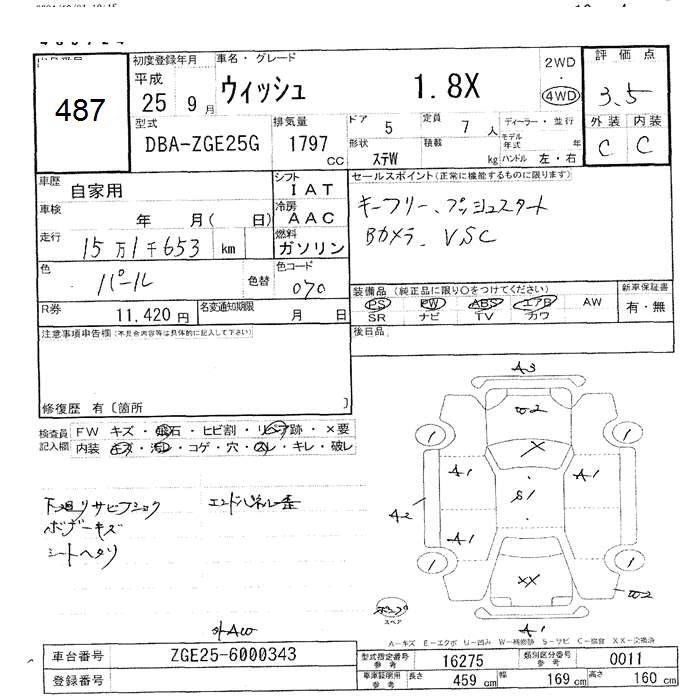 487
初度登録年月 車名・グレード
平成 25 9月 ウィッシュ 1.8X
2WD・4WD
評価点
3.5
外装 内装
C C
型式 排気量 ドア 5 定員 7人 ディーラー・並行
DBA-ZGE25G 1797 cc
形状 ステW 積載 kg モデル年式 年
ハンドル 左・右
車歴 自家用 シフト IAT
車検 年 月( 日) 冷房 AAC
走行 15万1千653 km 燃料 ガソリン
色 パール 色替 色コード 070
R券 11,420円 名変通知期限 月 日
セールスポイント(正常に機能するものに限ります)
キーフリー、プッシュスタート
Bカメラ、VSC
装備品(純正品に限り○をつけてください) 新車保証書
PS PW ABS エアB AW 有・無
SR ナビ TV カワ
後日品
注意事項申告欄(不具合内容等は具体的に記入して下さい)
修復歴 有〔箇所 〕
検査員記入欄 FW キズ・飛石・ヒビ割・リペア跡・×要
内装 キズ・汚レ・コゲ・穴・スレ・キレ・破レ
下廻リサビフショク エンドパネル歪
ボデーキズ
シートヘタリ
外AW
A3
W2
X
A1 A1
S1
A2
A1
XX
W2
A1
1 1 1 1
スペア
A-キズ E-エクボ U-凹み W-補修跡 S-サビ C-腐食 XX-交換済
車台番号 ZGE25-6000343
登録番号
型式指定番号 参考 16275 類別区分番号 参考 0011
車庫証明用 参考 長さ 459cm 幅 169cm 高さ 160cm